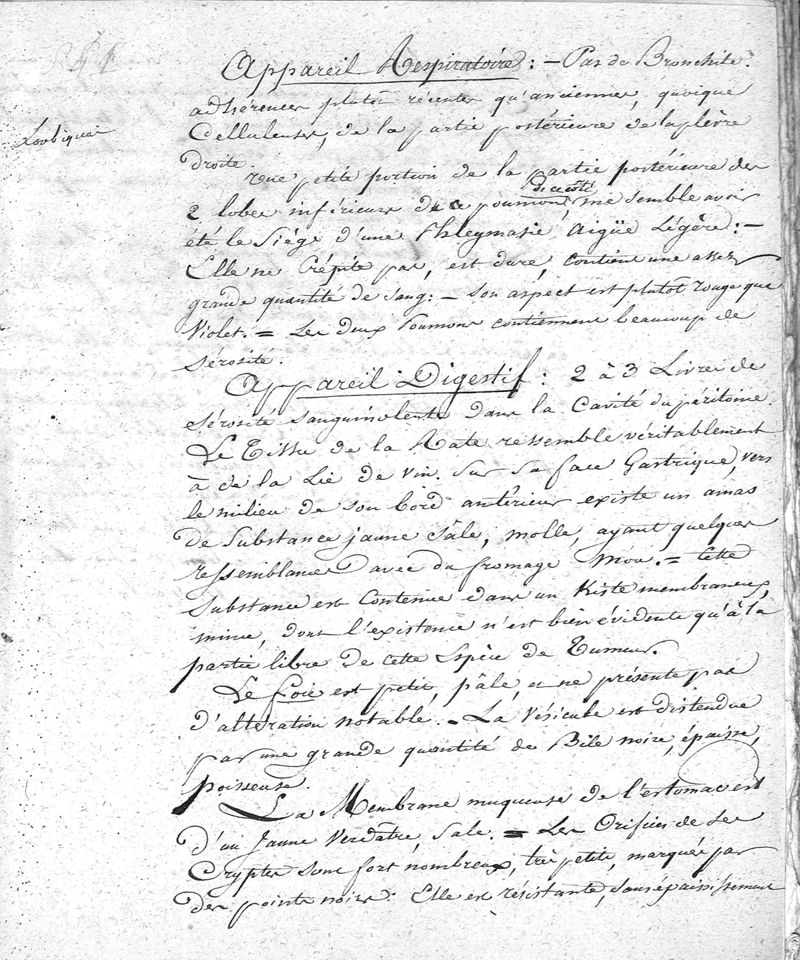 Appareil Respiratoire : – Pas de Bronchite.
adhérences plutot récentes qu'anciennes, quoique
Celluleuses, de la partie postérieure de la plèvre
droite.
une petite portion de la partie postérieure des
2 lobes inférieurs de ce poumon me semble avoir
été le Siége d'une Phlegmasie Aigüe Légère : –
Elle ne Crépite pas, est dure, contient une assez
grande quantité de Sang : – Son aspect est plutot rouge que
Violet. = Les deux Poumons contiennent beaucoup de
Sérosité.
Appareil Digestif : 2 à 3 Livres de
Sérosité Sanguinolente dans la Cavité du péritoine.
Le Tissu de la Rate ressemble véritablement
à de la Lie de Vin. Sur Sa face Gastrique, vers
le milieu de Son bord antérieur existe un amas
de Substance jaune Sâle, molle, ayant quelque
ressemblance avec du fromage Mou. = Cette
Substance est Contenue dans un Kiste membraneux,
mince, dont l'existence n'est bien évidente qu'à la
partie libre de cette Espèce de Tumeur.
Le foie est petit, pâle, et ne présente pas
d'altération notable. – La Vésicule est distendue
par une grande quantité de Bile noire, épaisse,
poisseuse.
La Membrane muqueuse de l'estomac est
d'un Jaune Verdâtre, Sale. = Les Orifices de Ses
Cryptes Sont fort nombreux, très petits, marqués par
des points noirs. Elle est résistante, Sans épaississement